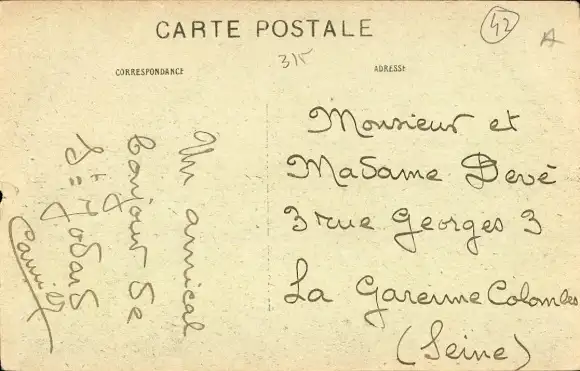 CARTE POSTALE
42
A
315
CORRESPONDANCE
ADRESSE
Un amical
bonjour de
St=Jodard
Camille
Monsieur et
Madame Devé
3 rue Georges 3
La Garenne Colombes
(Seine)